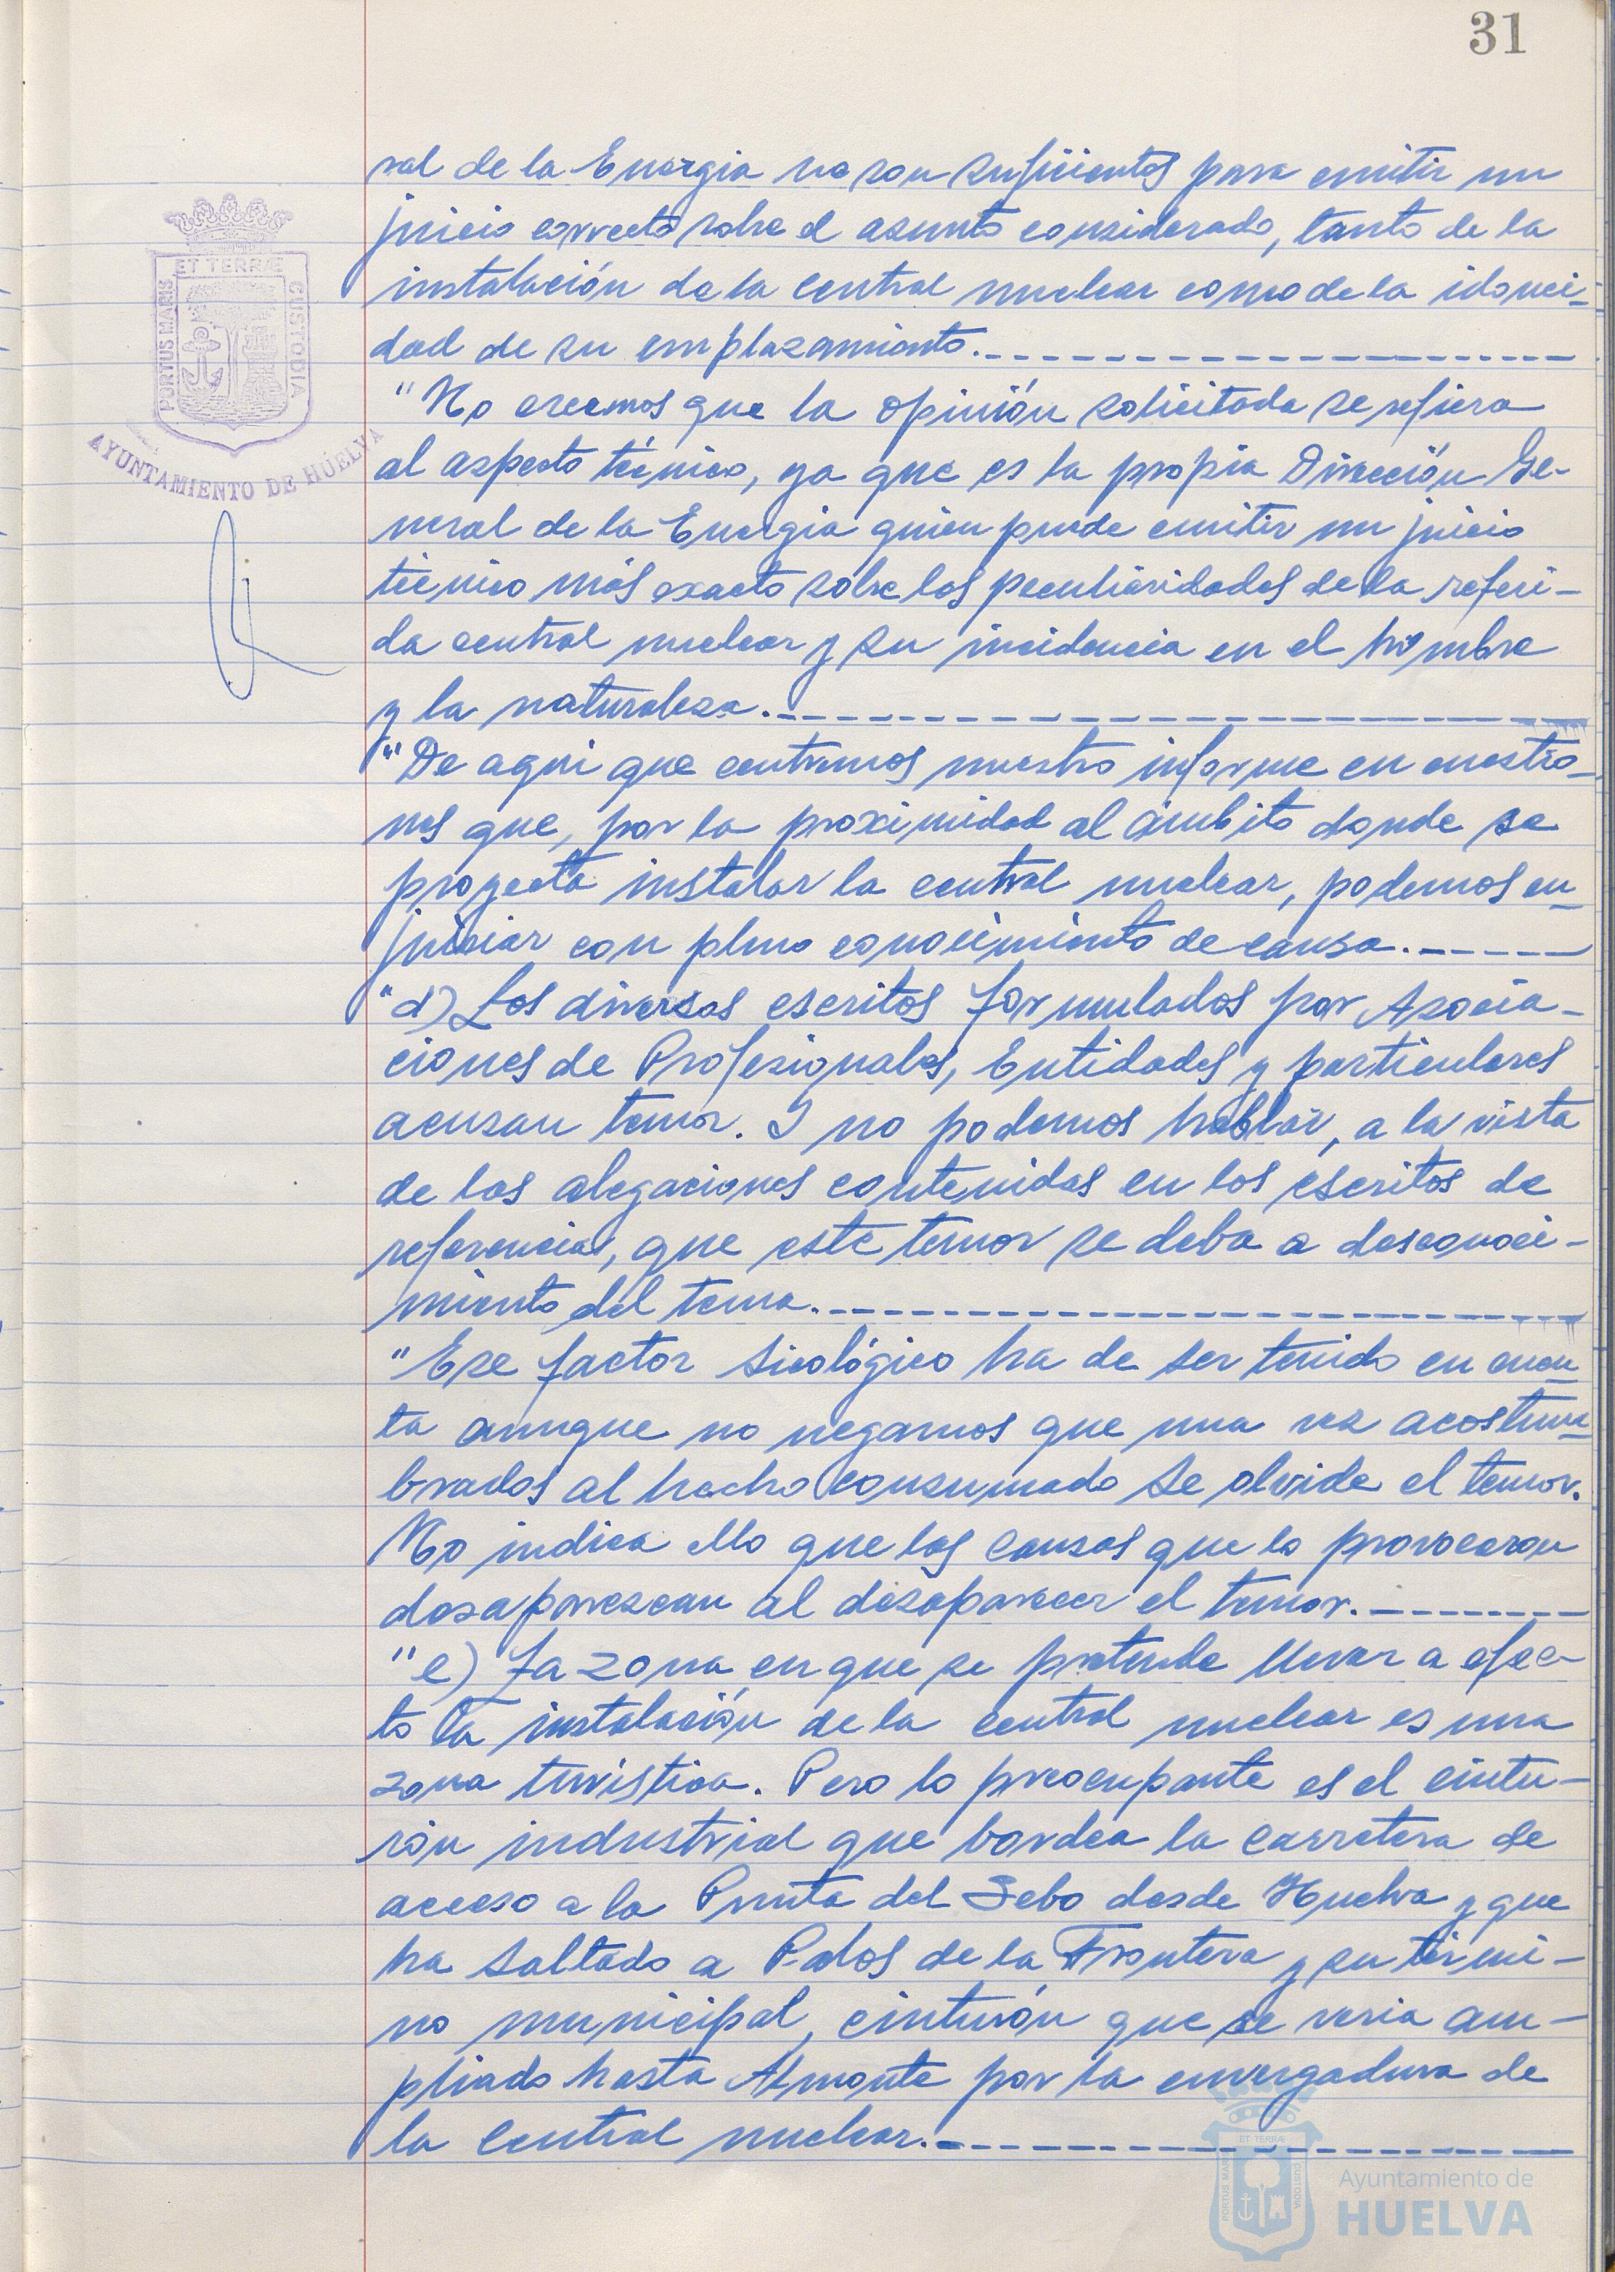 31
ral de la Energia no son suficientes para emitir un
juicio correcto sobre el asunto considerado, tanto de la
instalación de la central nuclear como de la idonei-
dad de su emplazamiento.
"No creemos que la opinión solicitada se refiera
al aspecto técnico, ya que es la propia Dirección Ge-
neral de la Energia quien puede emitir un juicio
técnico más exacto sobre las peculiaridades de la referi-
da central nuclear y su incidencia en el hombre
y la naturaleza.
"De aqui que centremos nuestro informe en cuestio-
nes que, por la proximidad al ámbito donde se
proyecta instalar la central nuclear, podemos en-
juiciar con pleno conocimiento de causa.
"d) Los diversos escritos formulados por Asocia-
ciones de Profesionales, Entidades y particulares
acusan temor. Y no podemos hablar, a la vista
de las alegaciones contenidas en los escritos de
referencia, que este temor se deba a desconoci-
miento del tema.
"Ese factor sicológico ha de ser tenido en cuen-
ta aunque no negamos que una vez acostum-
brados al hecho consumado se olvide el temor.
No indica ello que las causas que lo provocaron
desaparezcan al desaparecer el temor.
"e) La zona en que se pretende llevar a efec-
to la instalación de la central nuclear es una
zona turistica. Pero lo preocupante es el cintu-
rón industrial que bordea la carretera de
acceso a la Punta del Sebo desde Huelva y que
ha saltado a Palos de la Frontera y su térmi-
no municipal, cinturón que se veria am-
pliado hasta Almonte por la envergadura de
la central nuclear.
PORTUS MARIS ET TERRÆ CUSTODIA
AYUNTAMIENTO DE HUELVA
PORTUS MARIS ET TERRÆ CUSTODIA
Ayuntamiento de
HUELVA